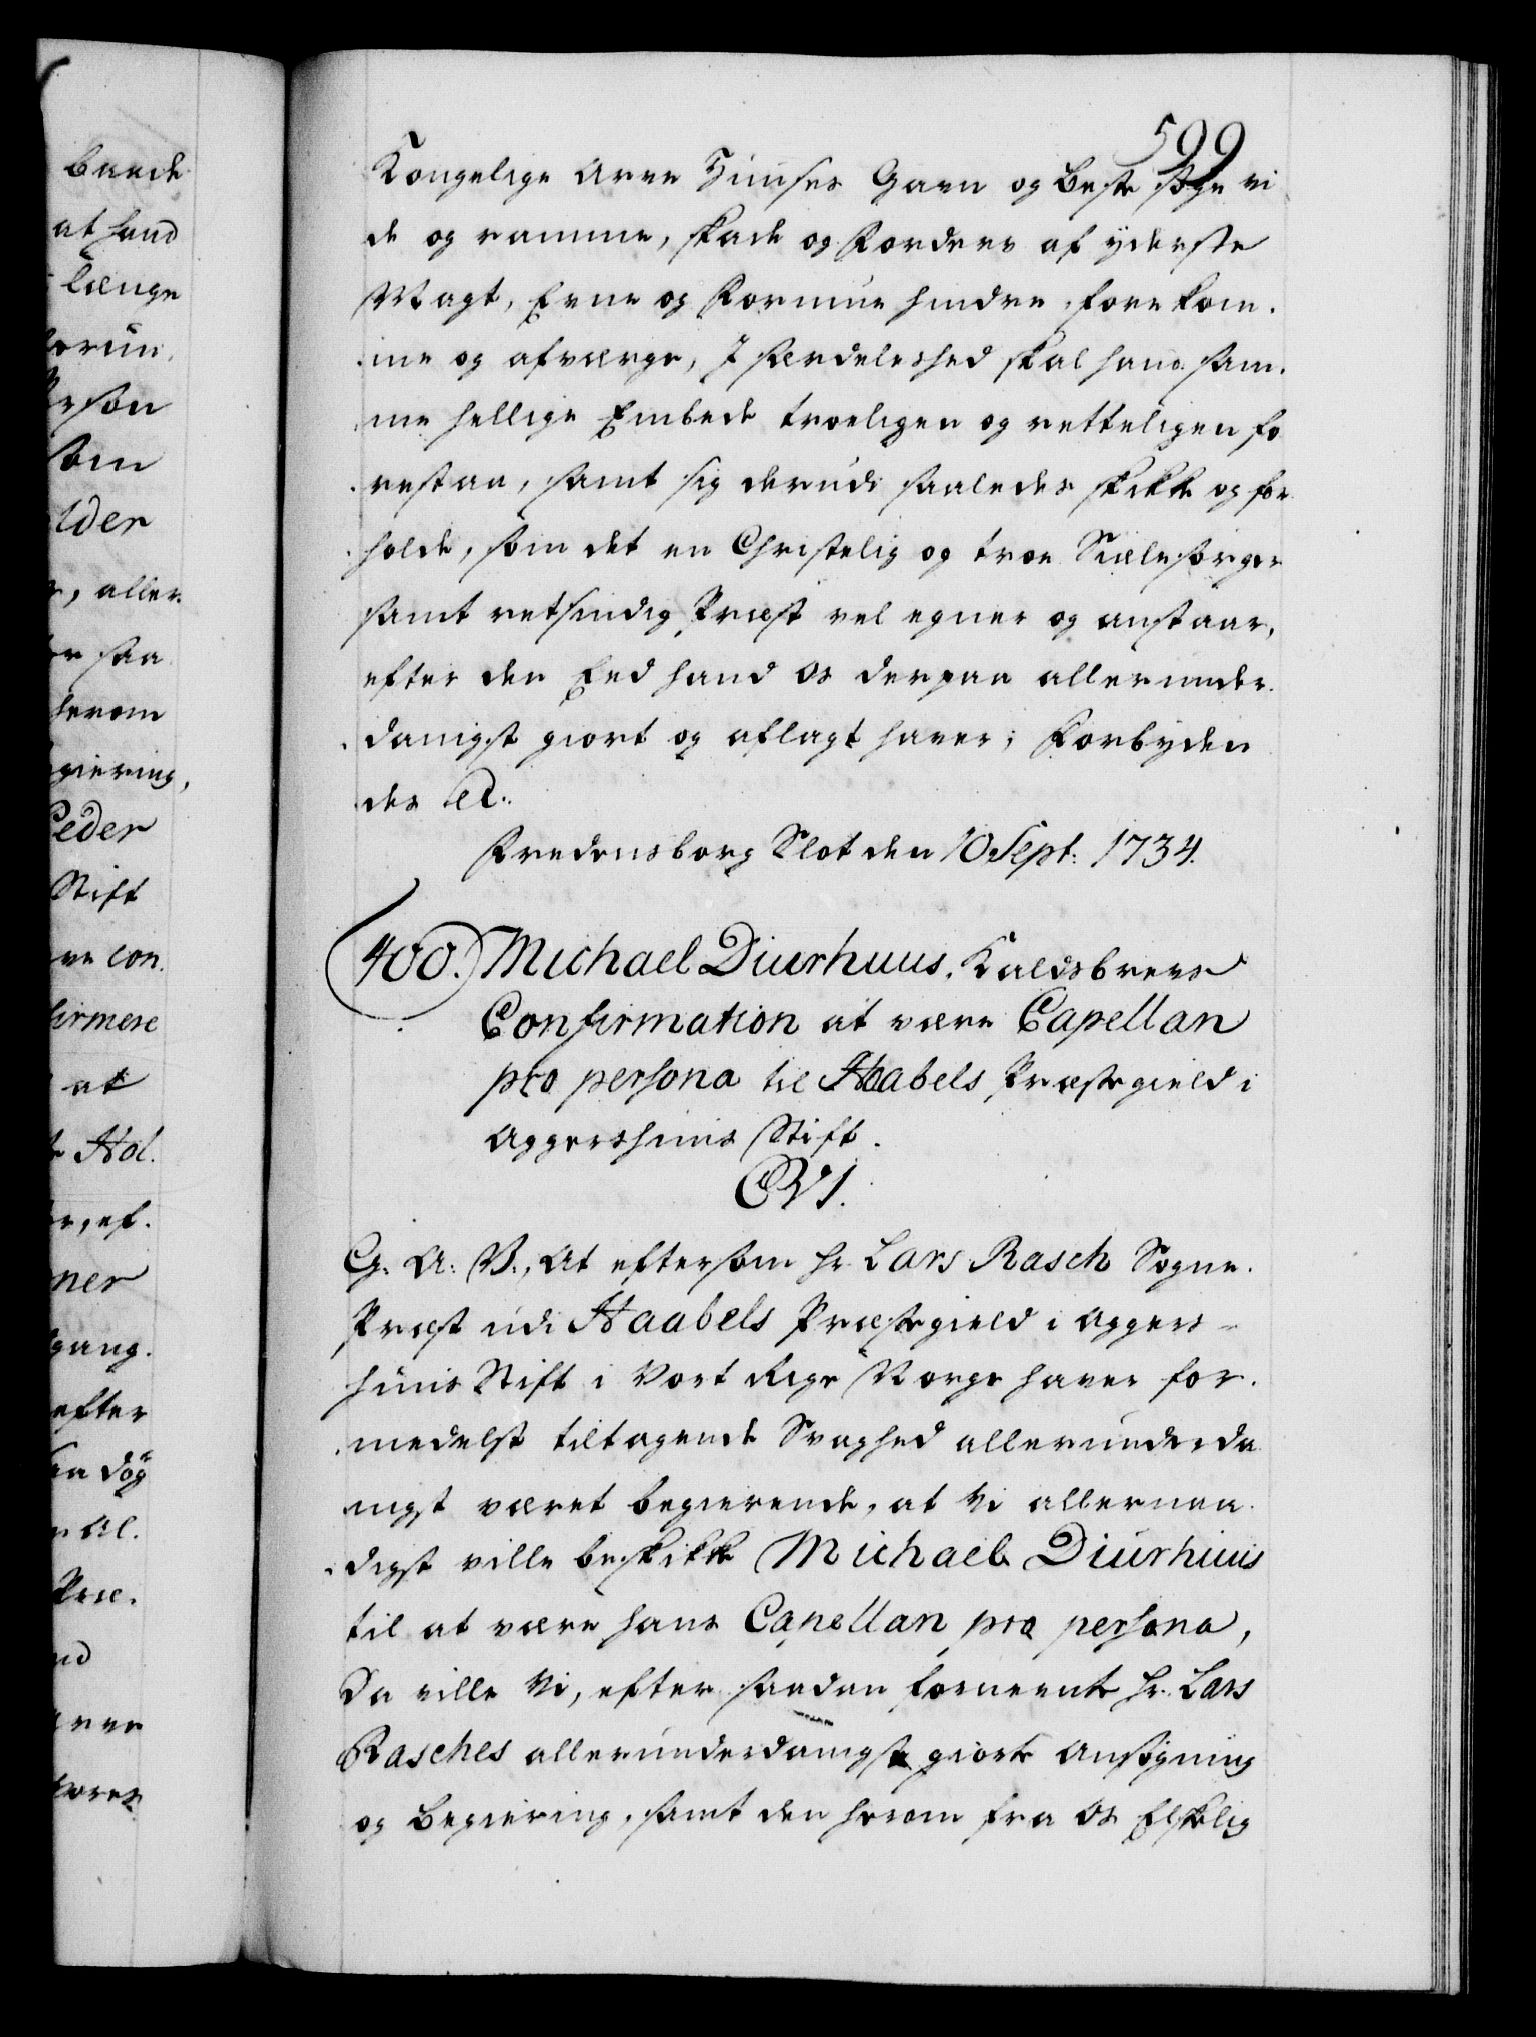 599
Kongelige Arve Huuses Gavn og Beste søge vi
de og ramme, skade og Fordærv af yderste
Magt, Evne og Formue hindre, forekom.
me og afværge, I særdeleshed skal hand sam.
me hellige Embede troeligen og retteligen fo
restaa, samt sig derudi saaledes skikke og for
holde, som det en Christelig og troe Siælesørger
samt retsindig Præst vel egner og anstaar,
efter den Eed hand Os derpaa allerunder.
danigst giort og aflagt haver; Forbyden
des etc.
Fredensborg Slot den 10 Sept: 1734.
400. Michael Diurhuus, Kaldsbrevs
Confirmation at være Capellan
pro persona til Haabels Præstegield i
Aggershuus Stift.
CVI.
G. A: V., At eftersom Hr. Lars Rasch Sogne.
Præst udi Haabels Præstegield i Aggers-
huus Stift i Vort Rige Norge haver for.
medelst tiltagende Svaghed allerunderda
nigst været begierende, at Vi allernaa.
digst ville beskikke Michael Diurhuus
til at være hans Capellan pro persona,
Da ville Vi, efter saadan fornevnte Hr. Lars
Rasches allerunderdanigst giorte Ansøgning
og Begiering, samt den herom fra Os Elskelig
baade
at hand
længe
forun.
Person
som
elder
r, aller
saa
herom
egiering,
Peder
Stift
con.
firmere
at
Hol.
er, ef.
ner
gang.
efter
dog
Al.
Præ.